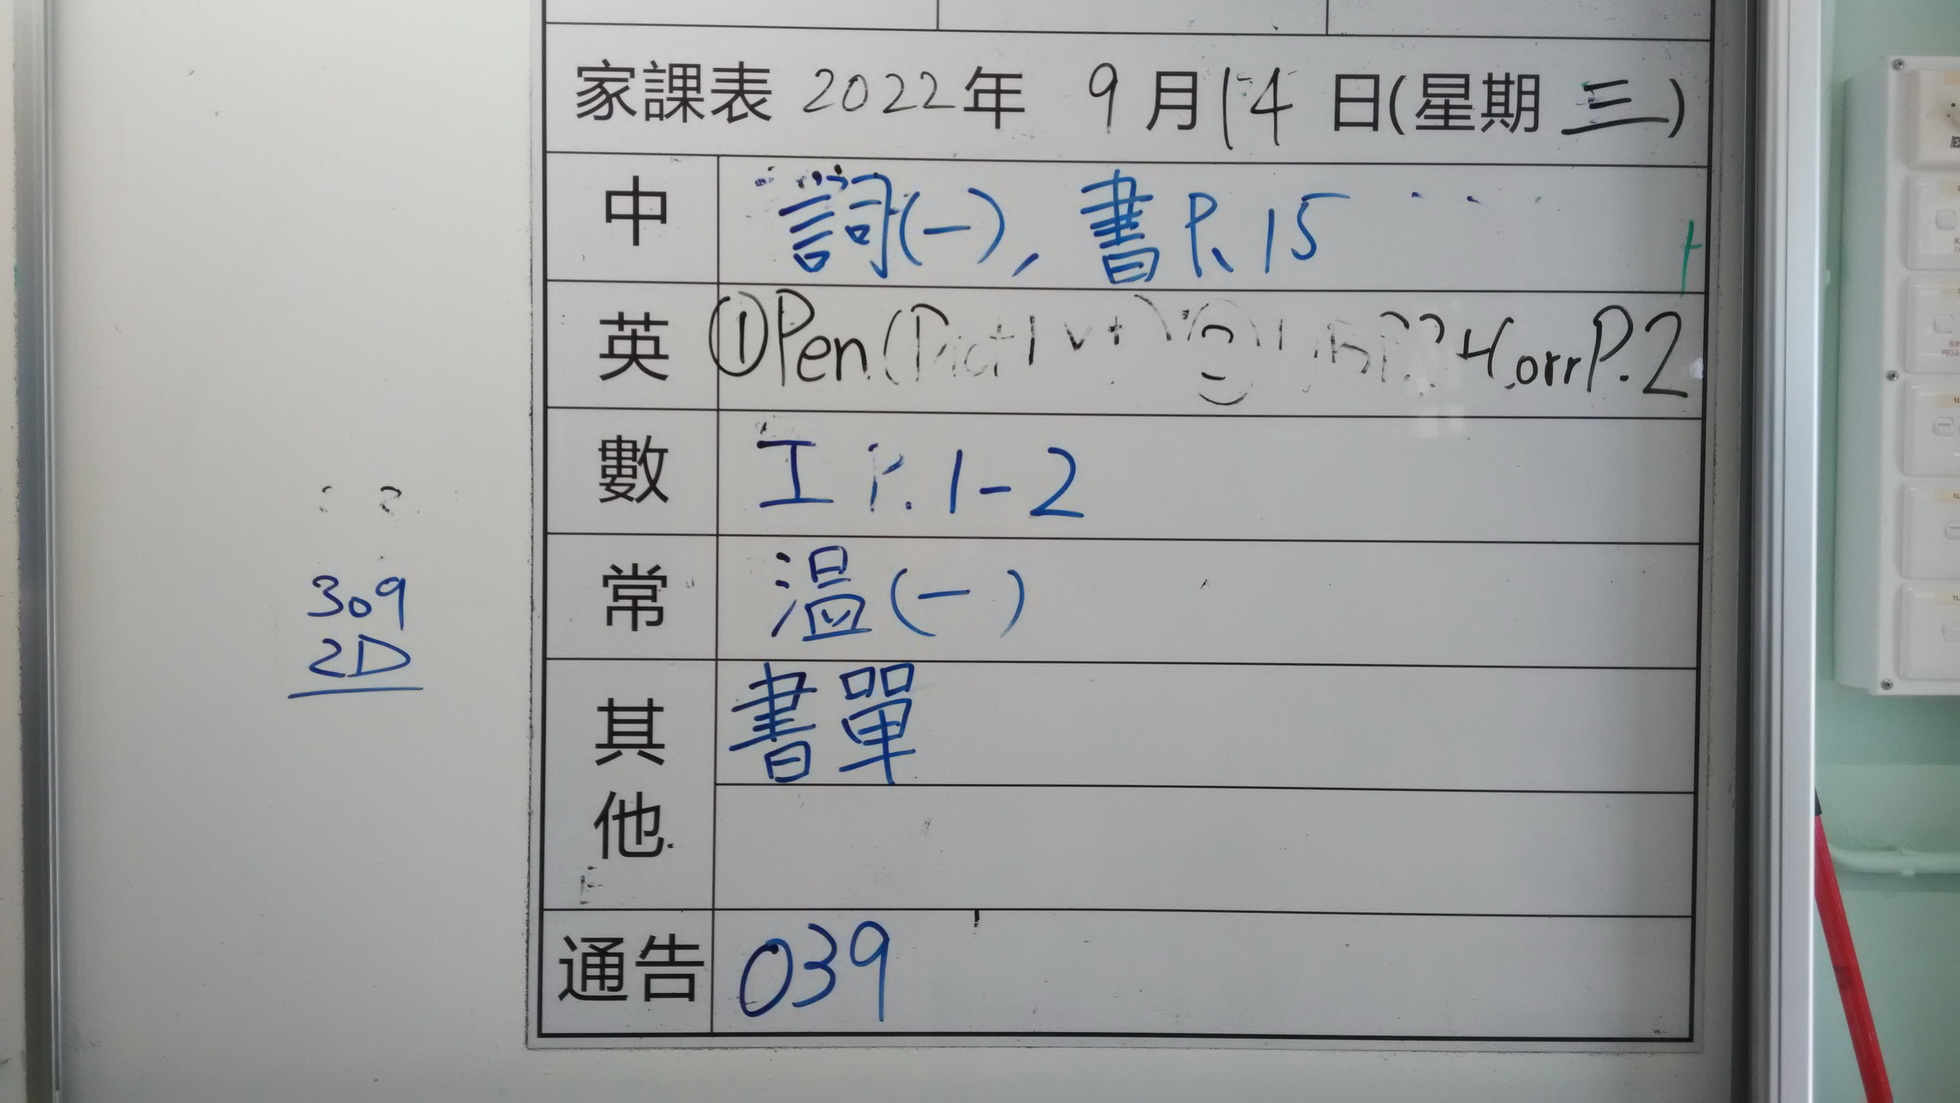 家課表 2022年 9月14日(星期三)
中 詞(一), 書P.15
英 ①Pen( ② +Corr P.2
數 工 P.1-2
常 溫(一)
其他 書單
通告 039
309
2D